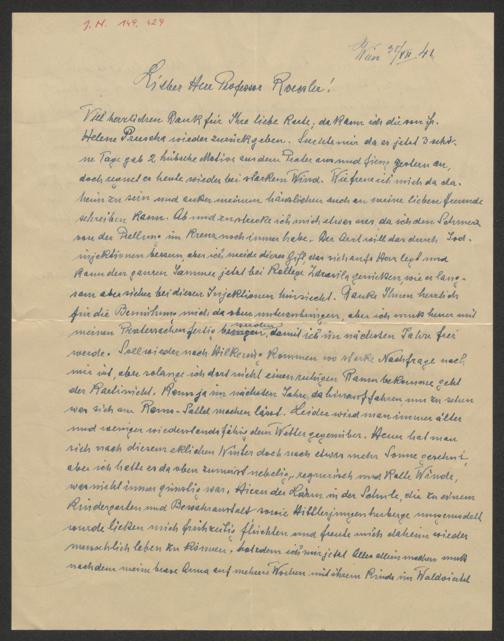 J. N. 149.429
Wien 31/VII. 41
Lieber Herr Professor Roessler!
Viel herzlichen Dank für Ihre liebe Karte, da kann ich die von Fr.
Helene wieder zurückgeben. Suchte mir da es jetzt 3 schö-
ne Tage gab 2 hübsche Motive aus dem Prater aus und fieng gestern an,
doch heute wieder bei starkem Wind. Wie freue ich mich da da-
heim zu sein und außer meinem häuslichen auch an meine lieben Freunde
schreiben kann. Ab und zu strecke ich mich etwas aus da ich den Schmerz
von der Prellung im Kreuz noch immer habe. Der Arzt will das durch Jod-
injektionen bessern, aber ich meide dieses Gift, das sich aufs Herz legt und
kann den ganzen Jammer jetzt bei Kollege Zdrazila genießen, wie er lang-
sam aber sicher bei diesen Injektionen hinsiecht. Danke Ihnen herzlich
für die Bemühung mich da oben unterzubringen, aber ich muß heuer mit
meinen Pratersachen fertig werden, damit ich im nächsten Jahre frei
werde. Soll wieder nach kommen wo starke Nachfrage nach
mir ist, aber solange ich dort nicht einen ruhigen Raum bekomme geht
der Karli nicht. Kann ja im nächsten Jahre, da hinauf fahren um zu sehen
was sich am machen lässt. Leider wird man immer älter
und weniger wiederstandsfähig dem Wetter gegenüber. Heuer hat man
sich nach diesem ekligen Winter doch nach etwas mehr Sonne gesehnt,
aber ich hatte es da oben zumeist nebelig, regnerisch und kalte Winde,
was nicht immer günstig war. Hier der Lärm in der Schule, die zu einem
Kindergarten und Bewahranstalt sowie Hittlerjungenherberge umgemodelt
wurde ließen mich frühzeitig flüchten und freute mich daheim wieder
menschlich leben zu können, trotzdem ich mir jetzt Alles allein machen muß
nachdem meine brave Anna auf mehrere Wochen mit ihrem Kinde im Waldviertel